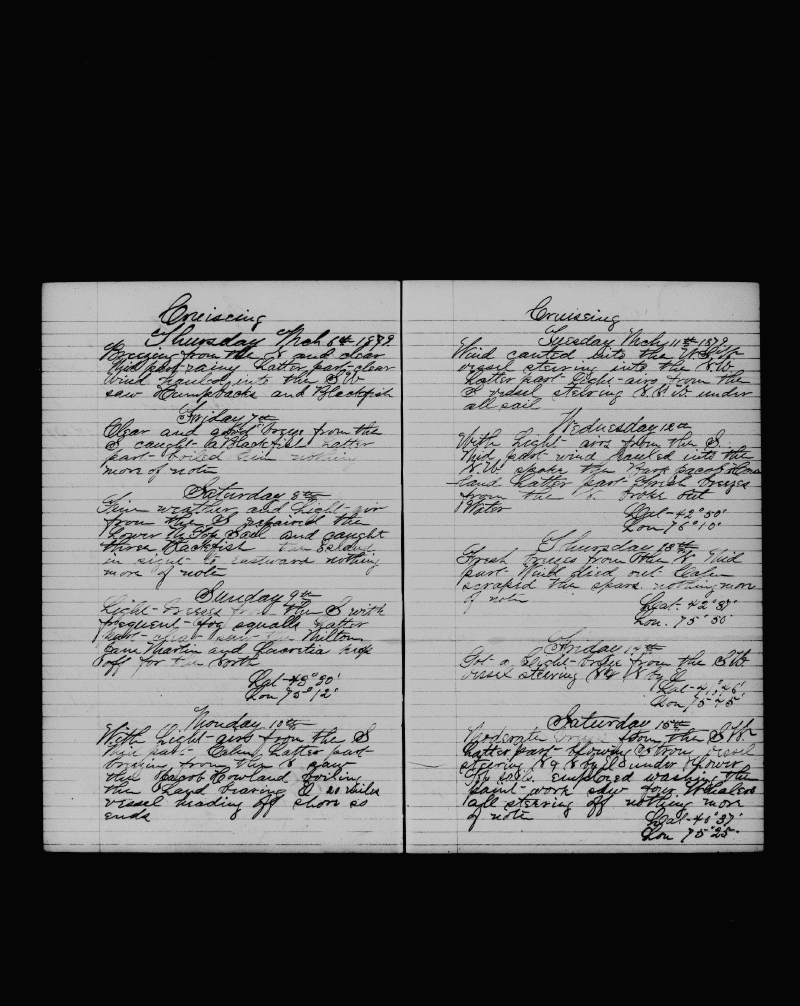 Cruiscing
Thursday Mch 6th 1879
Breezing from the N and clear
Mid part rainy Latter part clear
wind hauled into the SW
saw Humpbacks and Blackfish
Friday 7th
Clear and good breeze from the
S caught a Blackfish Latter
part boiled him nothing
more of note
Saturday 8th
Fine weather and Light air
from the S repaired the
Lower M Top Sail and caught
three Blackfish the Island
in sight to eastward nothing
more of note
Sunday 9th
Light breezes from the S with
frequent fog squalls Latter
part clear saw the Milton
Eliza Martin and Lucretia
off for the North
Lat 43° 30'
Lon 75° 12'
Monday 10th
With Light airs from the S
Mid part Calm Latter part
breezing from the N saw
the Jacob Howland boiling
the Land bearing E 20 miles
vessel heading off shore so
ends
Cruiscing
Tuesday Mch 11th 1879
Wind canted into the W.S.W
vessel steering into the N.W.
Latter part Light airs from the
S vessel steering N.N.W under
all sail
Wednesday 12th
With Light airs from the S.
Mid part wind hauled into the
N.W. spoke the Bark Jacob How
land Latter part fresh breezes
from the N. broke out
Water
Lat 42° 50'
Lon 76° 10'
Thursday 13th
Fresh breezes from the N Mid
part Wind died out Calm
scraped the spars. nothing more
of note
Lat. 42° 37'
Lon. 75° 50'
Friday 14th
Got a Light breeze from the SW
vessel steering N by E
Lat 41° 46'
Lon 75° 45'
Saturday 15th
Moderate breeze from the S.W.
Latter part blowing Strong vessel
steering under Lower
Top sails. employed washing the
paint work saw four Whalers
all steering off nothing more
of note
Lat 40° 37'
Lon 75° 25'